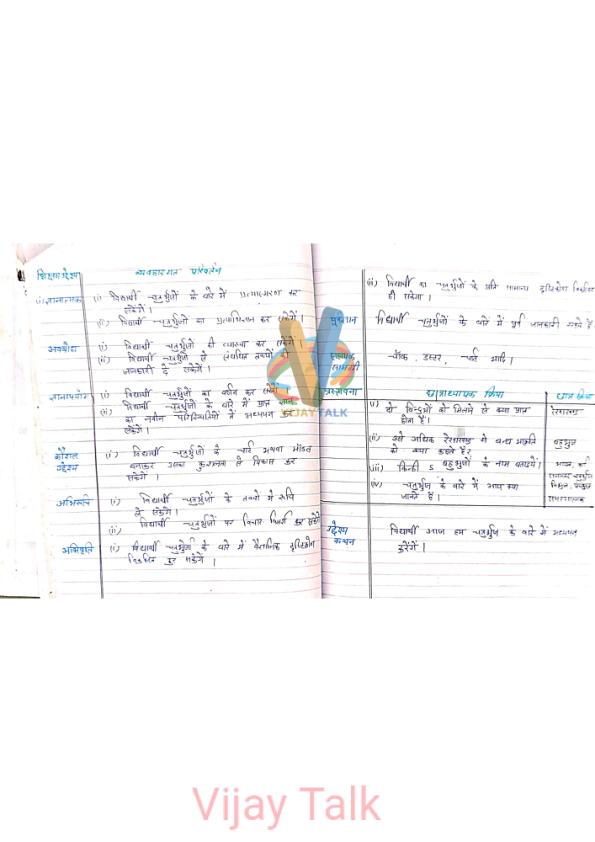 शिक्षण उद्देश्य व्यवहारगत परिवर्तन
(i) ज्ञानात्मक (i) विद्यार्थी चतुर्भुजों के बारे में प्रत्यास्मरण कर
सकेंगे।
(ii) विद्यार्थी चतुर्भुजों का प्रत्यभिज्ञान कर सकेंगे।
अवबोध (i) विद्यार्थी चतुर्भुजों की व्याख्या कर सकेंगे।
(ii) विद्यार्थी चतुर्भुजों से संबंधित तथ्यों की
जानकारी दे सकेंगे।
ज्ञानोपयोग (i) विद्यार्थी चतुर्भुजों का वर्णन कर सकेंगे।
(ii) विद्यार्थी चतुर्भुजों के बारे में प्राप्त ज्ञान
का नवीन परिस्थितियों में अध्ययन कर
सकेंगे।
कौशल उद्देश्य (i) विद्यार्थी चतुर्भुजों के चार्ट अथवा मॉडल
बनाकर अपना कुशलता से विकास कर
सकेंगे।
अभिरूचि (i) विद्यार्थी चतुर्भुजों के तथ्यों में रुचि
ले सकेंगे।
(ii) विद्यार्थी चतुर्भुजों पर विचार विमर्श कर सकेंगे
अभिवृत्ति (i) विद्यार्थी चतुर्भुजों के बारे में वैज्ञानिक दृष्टिकोण
विकसित कर सकेंगे।
(ii) विद्यार्थी का चतुर्भुजों के प्रति सामान्य दृष्टिकोण विकसित
हो सकेगा।
पूर्वज्ञान विद्यार्थी चतुर्भुजों के बारे में पूर्व जानकारी रखते हैं।
सहायक सामग्री चॉक, डस्टर, चार्ट आदि।
प्रस्तावना छात्राध्यापक क्रिया छात्र क्रिया
(i) दो बिन्दुओं को मिलाने से क्या प्राप्त
होता है। रेखाखण्ड
(ii) से अधिक रेखाखण्ड से बन्द आकृति
को क्या कहते हैं? बहुभुज
(iii) किन्हीं 5 बहुभुजों के नाम बताइये। आयत, वर्ग
समान्तर चतुर्भुज
(iv) चतुर्भुज के बारे में आप क्या
जानते हैं। समस्यात्मक
उद्देश्य कथन विद्यार्थी आज हम चतुर्भुज के बारे में अध्ययन
करेंगे।
VIJAY TALK
Vijay Talk